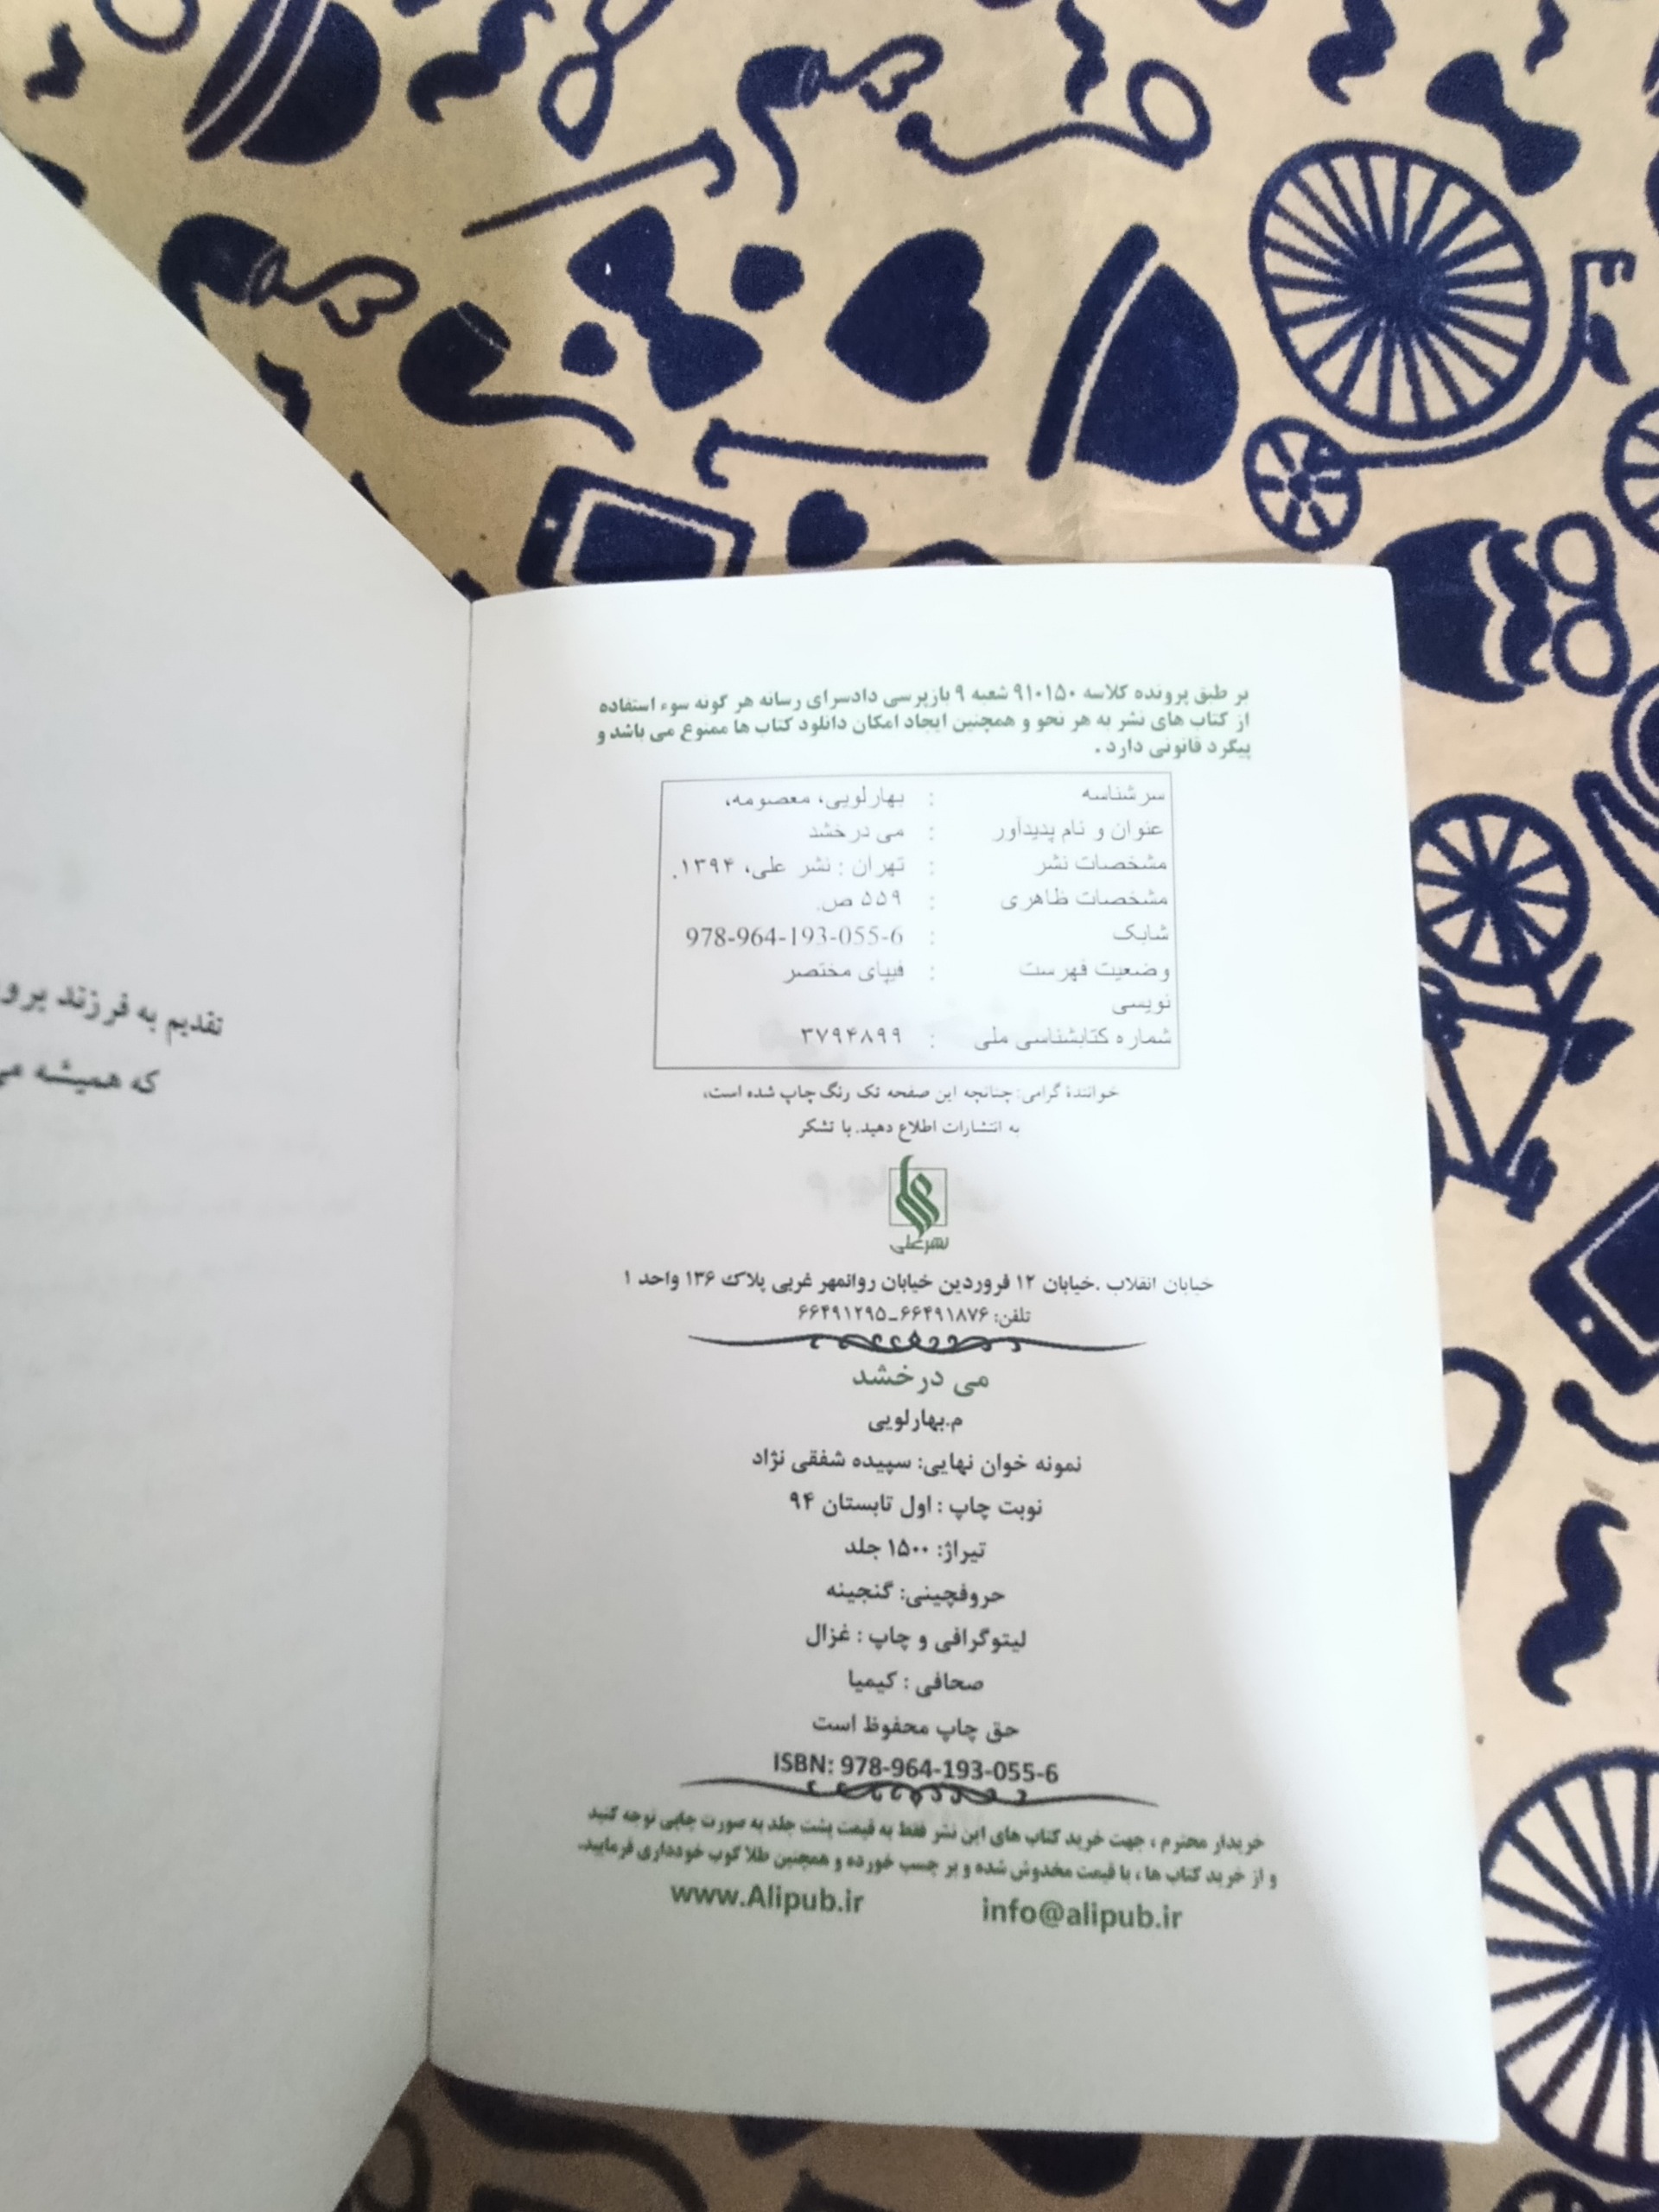 بر طبق پرونده کلاسه ۹۱۰۱۵۰ شعبه ۹ بازپرسی دادسرای رسانه هر گونه سوء استفاده
از کتاب های نشر به هر نحو و همچنین ایجاد امکان دانلود کتاب ها ممنوع می باشد و
پیگرد قانونی دارد .
سرشناسه : بهارلویی، معصومه،
عنوان و نام پدیدآور : می درخشد
مشخصات نشر : تهران : نشر علی، ۱۳۹۴.
مشخصات ظاهری : ۵۵۹ ص.
شابک : 978-964-193-055-6
وضعیت فهرست : فیپای مختصر
نویسی
شماره کتابشناسی ملی : ۳۷۹۴۸۹۹
خوانندهٔ گرامی: چنانچه این صفحه تک رنگ چاپ شده است،
به انتشارات اطلاع دهید. با تشکر
نشر علی
خیابان انقلاب .خیابان ۱۲ فروردین خیابان روانمهر غربی پلاک ۱۳۶ واحد ۱
تلفن: ۶۶۴۹۱۸۷۶-۶۶۴۹۱۲۹۵
می درخشد
م.بهارلویی
نمونه خوان نهایی: سپیده شفقی نژاد
نوبت چاپ : اول تابستان ۹۴
تیراژ: ۱۵۰۰ جلد
حروفچینی: گنجینه
لیتوگرافی و چاپ : غزال
صحافی : کیمیا
حق چاپ محفوظ است
ISBN: 978-964-193-055-6
خریدار محترم ، جهت خرید کتاب های این نشر فقط به قیمت پشت جلد به صورت چاپی توجه کنید
و از خرید کتاب ها ، با قیمت مخدوش شده و بر چسب خورده و همچنین طلا کوب خودداری فرمایید.
www.Alipub.ir info@alipub.ir
تقدیم به فرزند
که همیشه